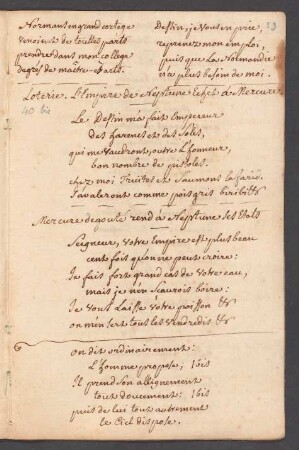 Normans en grand cortege
venoient de toutes parts
prendre dans mon college
degrés de maitre-ès-arts.
Destin, je vous en prie,
reprenez mon emploi,
puis que la Normandie
n'a plus besoin de moi.
Loterie. L'Empire de Neptune echet à Mercure
40 bis
Le Destin m'a fait Empereur
des harencs et des Soles,
qui me vaudront, outre l'honneur,
bon nombre de pistoles.
chez moi Truites et Saumons
s'avaleront comme pois gris
Mercure degouté rend à Neptune ses Etats
Seigneur, votre Empire est plus beau
cent fois qu'on ne peut croire:
Je fais fort grand cas de votre eau,
mais je n'en sçaurois boire:
Je vous laisse votre poisson &c
on m'en sert tous les vendredis &c
on dit ordinairement:
L'homme propose; 1 bis
Il prend son allignement
tout doucement: 1 bis
puis de lui tout autrement
le Ciel dispose.